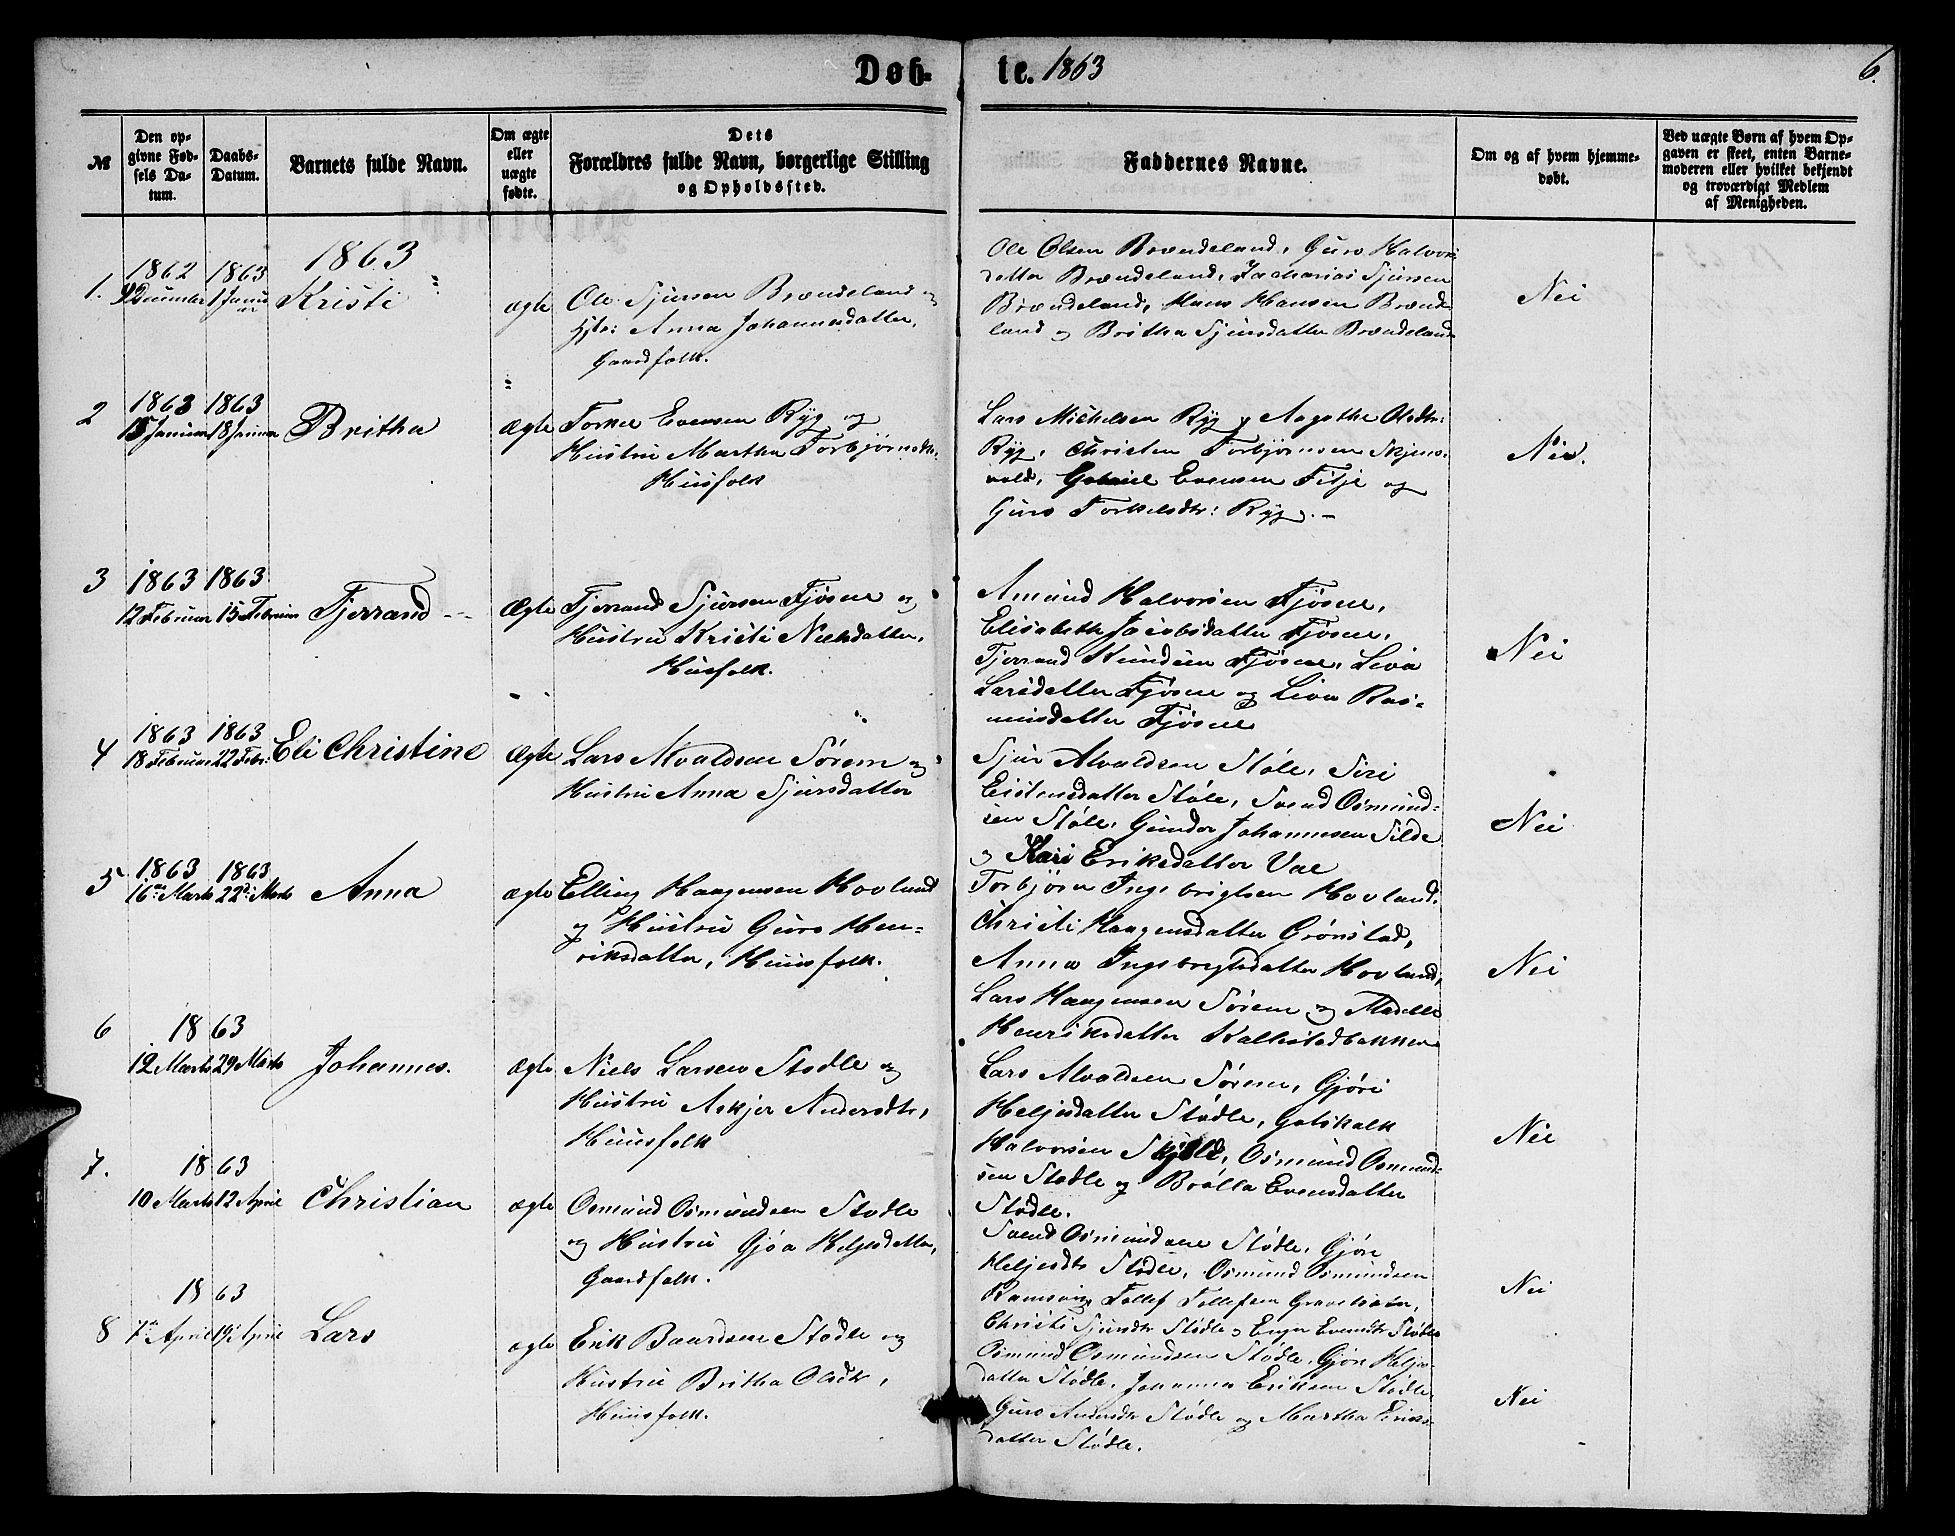 Døb-
te. 1863
6.
№
Den op-
givne Fød-
sels Da-
tum.
Daabs-
Datum.
Barnets fulde Navn.
Om ægte
eller
uægte
fødte.
Dets
Forældres fulde Navn, borgerlige Stilling
og Opholdssted.
Faddernes Navne.
Om og af hvem hjemme-
døbt.
Ved uægte Børn af hvem Op-
gaven er skeet, enten Barne-
moderen eller hvilket bekjendt
og troværdigt Medlem
af Menigheden.
1863
1.
1862
1863
Kristi
ægte
Ole Sjursen Brændeland og
Anna Johannesdatter,
Gaardfolk.
Ole Olsen Brændeland, Guro Halvors
datter Brændeland, Zacharias Sjursen
Brændeland, Hans Hansen Brænde
land og Britha Sjursdatter Brændeland
Nei
2
1863
1863
15 Januar
18 Januar
Britha
ægte
Torkel Evensen Ryg og
Hustru Martha Torbjørnsdtr.
Husfolk
Lars Michelsen Ryg, Aagothe Olsdtr:
Ryg, Christen Torbjørnsen Skjens-
vold, Gabriel Evensen Fitje og
Guro Torkelsdtr: Ryg. -
Nei.
3
1863
1863
12 Februar
15 Februar
Tjerrand
Ægte
Tjerrand Sjursen Tjøsne og
Hustru Kristi Nielsdatter,
Husfolk.
Amund Halvorsen Fjøsne,
Elisabeth Jacobsdatter Fjøsne,
Tjerrand Knudsen Fjøsne, Liva
Larsdatter Fjøsne og Liva Ras-
musdatter Fjøsne
Nei
4
1863
1863
18 Februar
22 Febr:
Eli Christine
Ægte
Lars Alvaldsen Sørem og
Hustru Anna Sjursdatter
Sjur Alvaldsen Støle, Siri
Eistensdatter Støle, Svend Osmund-
sen Støle, Gunder Johannesen Silde
og Kari Eriksdatter Vae
Nei
5
1863
1863
16de Marts
22de Marts
Anna
ægte
Elling Haagensen Hovland
og Hustru Guro Hen-
riksdatter, Huusfolk.
Torbjørn Ingebrigtsen Hovland,
Christi Haagensdatter Grønstad,
Anna Ingebrigtsdatter Hovland,
Lars Haagensen Sørem og Madelle
Henriksdatter Kallestadbakken
Nei
6
1863
12 Marts
29 Marts
Johannes.
Ægte
Niels Larsen Stødle og
Hustru Askjer Andersdtr,
Huusfolk
Lars Alvaldsen Sørem, Gjøri
Heljesdatter Stødle, Gotskalk
Halvorsen Skjold, Osmund Osmund-
sen Stødle og Brølla Evensdatter
Stødle.
Nei
7.
1863
10 Marts
12 April
Christian
ægte
Osmund Osmundsen Stødle
og Hustru Gjøa Heljesdatter,
Gaardfolk.
Svend Osmundsen Stødle, Gjøri
Heljesdtr Stødle, Osmund Osmundsen
Ramsvig, Tollef Tollefsen
Christi Sjursdtr Stødle og Evensdtr Stødle
Nei
8
1863
7de April
19de April
Lars
ægte
Erik Baardsen Stødle og
Hustru Britha Olsdtr,
Huusfolk.
Osmund Osmundsen Stødle, Gjøri Heljes-
datter Stødle, Johannes Eriksen Stødle,
Guro Andersdtr Stødle og Martha Eriks-
datter Stødle.
Nei